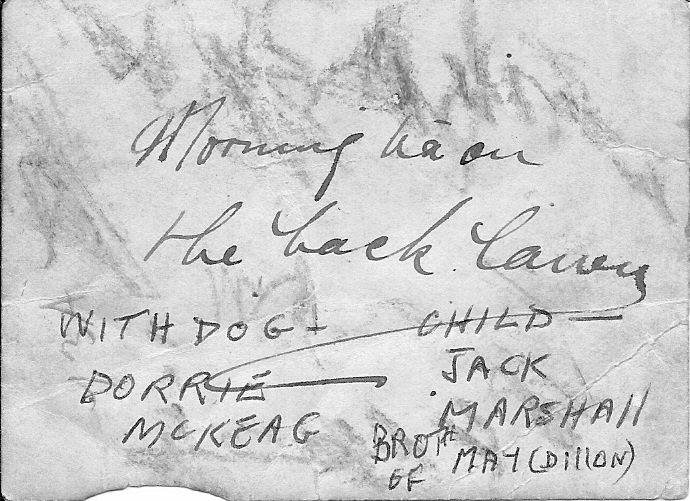 Morning tea on
the back Lawn
WITH DOG –
DORRIE
MCKEAG
CHILD –
JACK
MARSHALL
BROTH MAY (DILLON)
OF